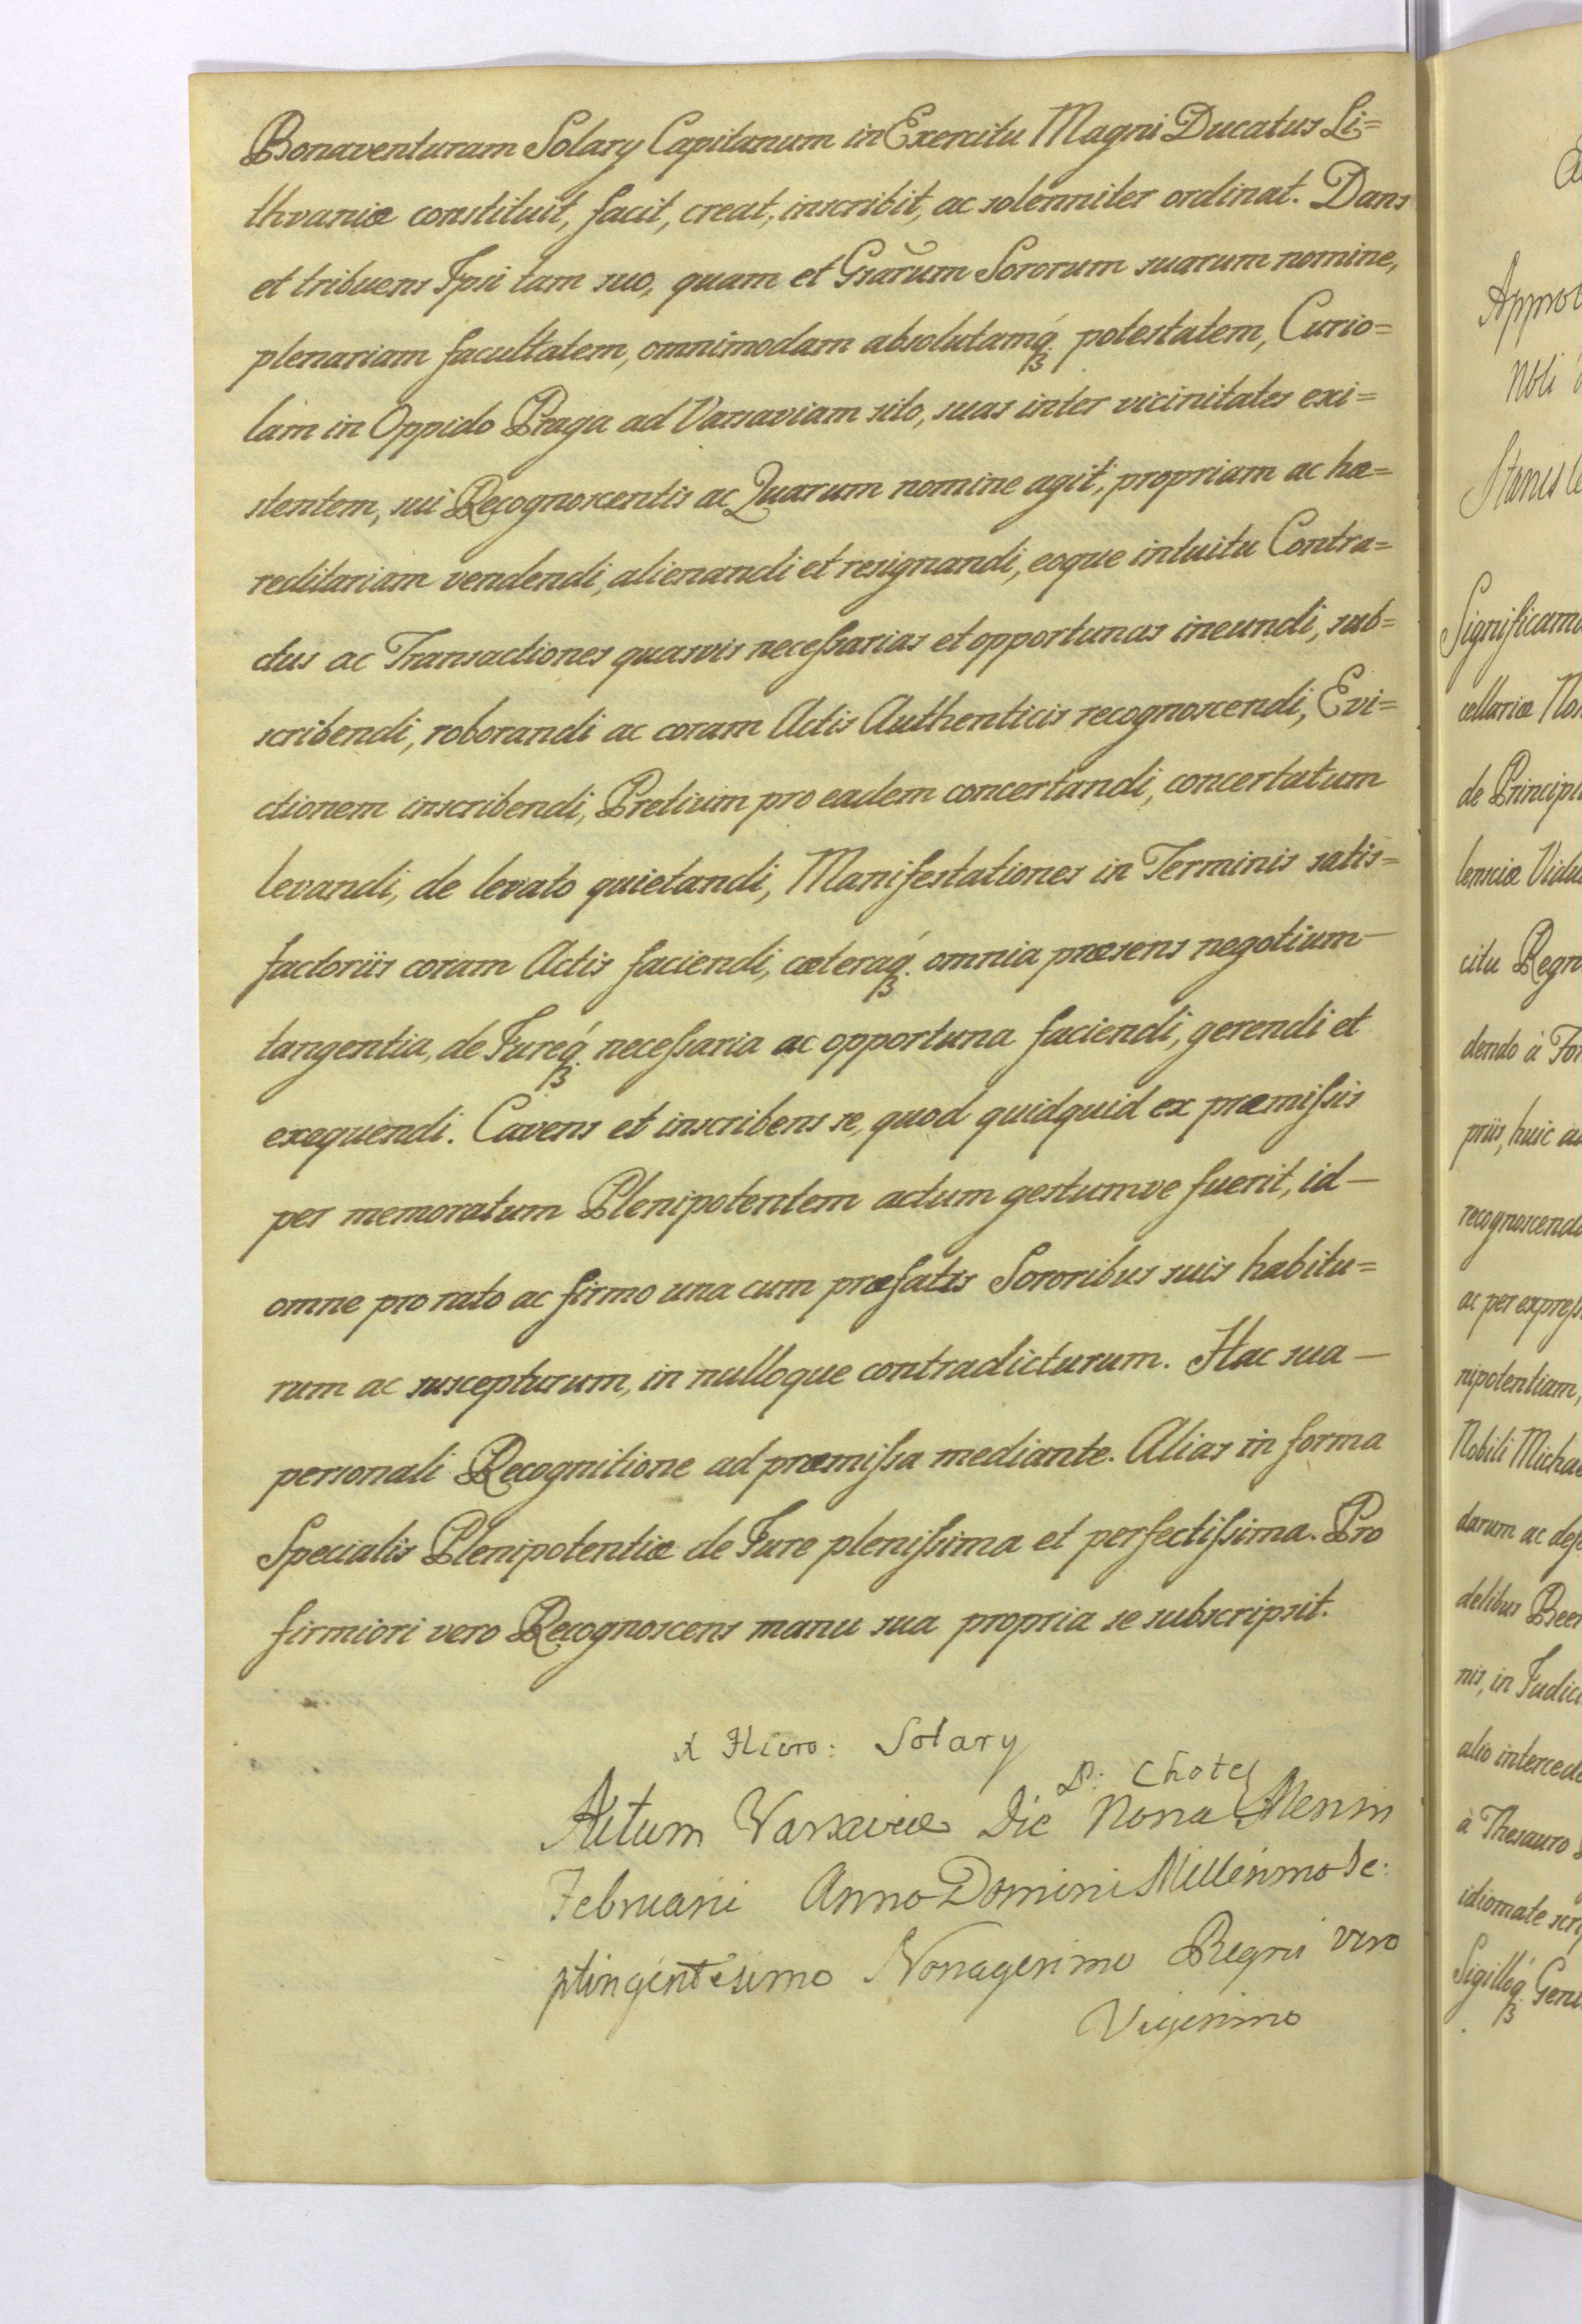 Bonaventuram Solary Capitanum in Exercitu Magni Ducatus Li=
thvaniæ constituit, facit, creat, inscribit, ac solenniter ordinat. Dans
et tribuens Ipsi tam suo, quam et Gsarum Sororum suarum nomine,
plenariam facultatem, omnimodam absolutamq́ꝫ potestatem, Curio=
lam in Oppido Praga ad Varsaviam sito, suas inter vicinitates exi=
stentem, sui Recognoscentis ac Quarum nomine agit, propriam ac hæ=
reditariam vendendi, alienandi et resignandi, eoque intuitu Contra=
ctus ac Transactiones quasvis necessarias et opportunas ineundi, sub=
scribendi, roborandi ac coram Actis Authenticis recognoscendi, Evi=
ctionem inscribendi, Pretium pro eadem concertandi, concertatum
levandi, de levato quietandi, Manifestationes in Terminis satis=
factoriis coram Actis faciendi, cæteraq́ꝫ omnia præsens negotium—
tangentia, de Jureq́ꝫ necessaria ac opportuna faciendi, gerendi et
exequendi. Cavens et inscribens se, quod quidquid ex præmissis
per memoratum Plenipotentem actum gestumve fuerit, id—
omne pro rato ac firmo una cum præfatis Sororibus suis habitu=
rum ac suscepturum, in nulloque contradicturum. Hac sua—
personali Recognitione ad præmissa mediante. Alias in forma
Specialis Plenipotentiæ de Jure plenissima et perfectissima. Pro
firmiori vero Recognoscens manu sua propria se subscripsit.
X Hiero: Solary
Actum Varsaviæ Die Nona Mensis
Februarii Anno Domini Millesimo Se:
ptingentesimo Nonagesimo Regni vero
Vigesimo
Approb
Nbli
Stanisl
Significam
cellariæ No
de Princip
lensciæ Vidu
citu Regn
dendo à For
priis, huic a
recognoscend
ac per express
nipotentiam,
Nobili Micha
darum ac def
delibus Bee
nis, in Judic
alio interced
à Thesauro
idiomate scri
Sigilloq́ꝫ Gen